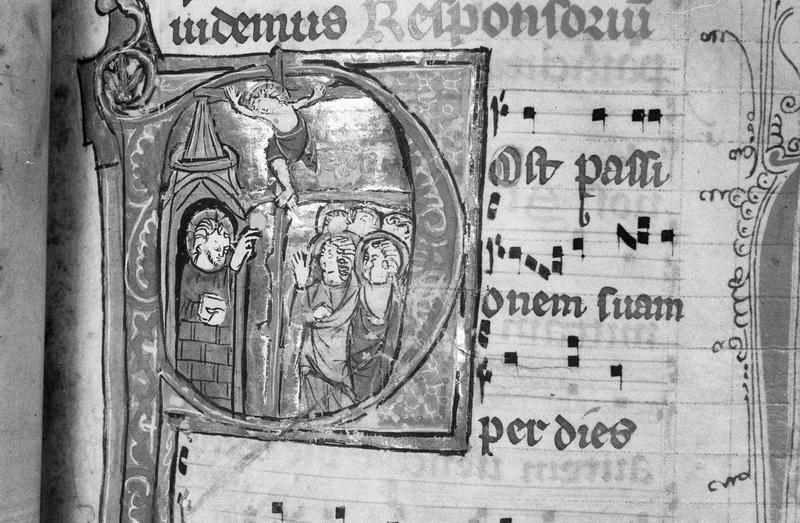 uidemus Responsoriũ
Ost passi
onem suam
per dies